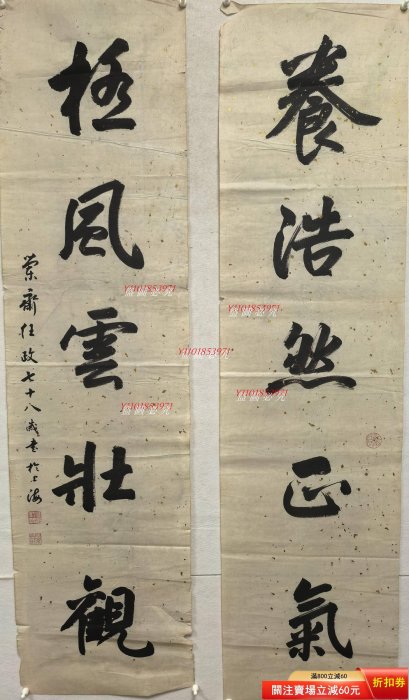 養浩然正氣
極風雲壯觀
蘭齋任政七十八歲書於上海
Y1101853971
Y1101853971
Y1101853971
滿800立減60
關注賣場立減60元
折扣券